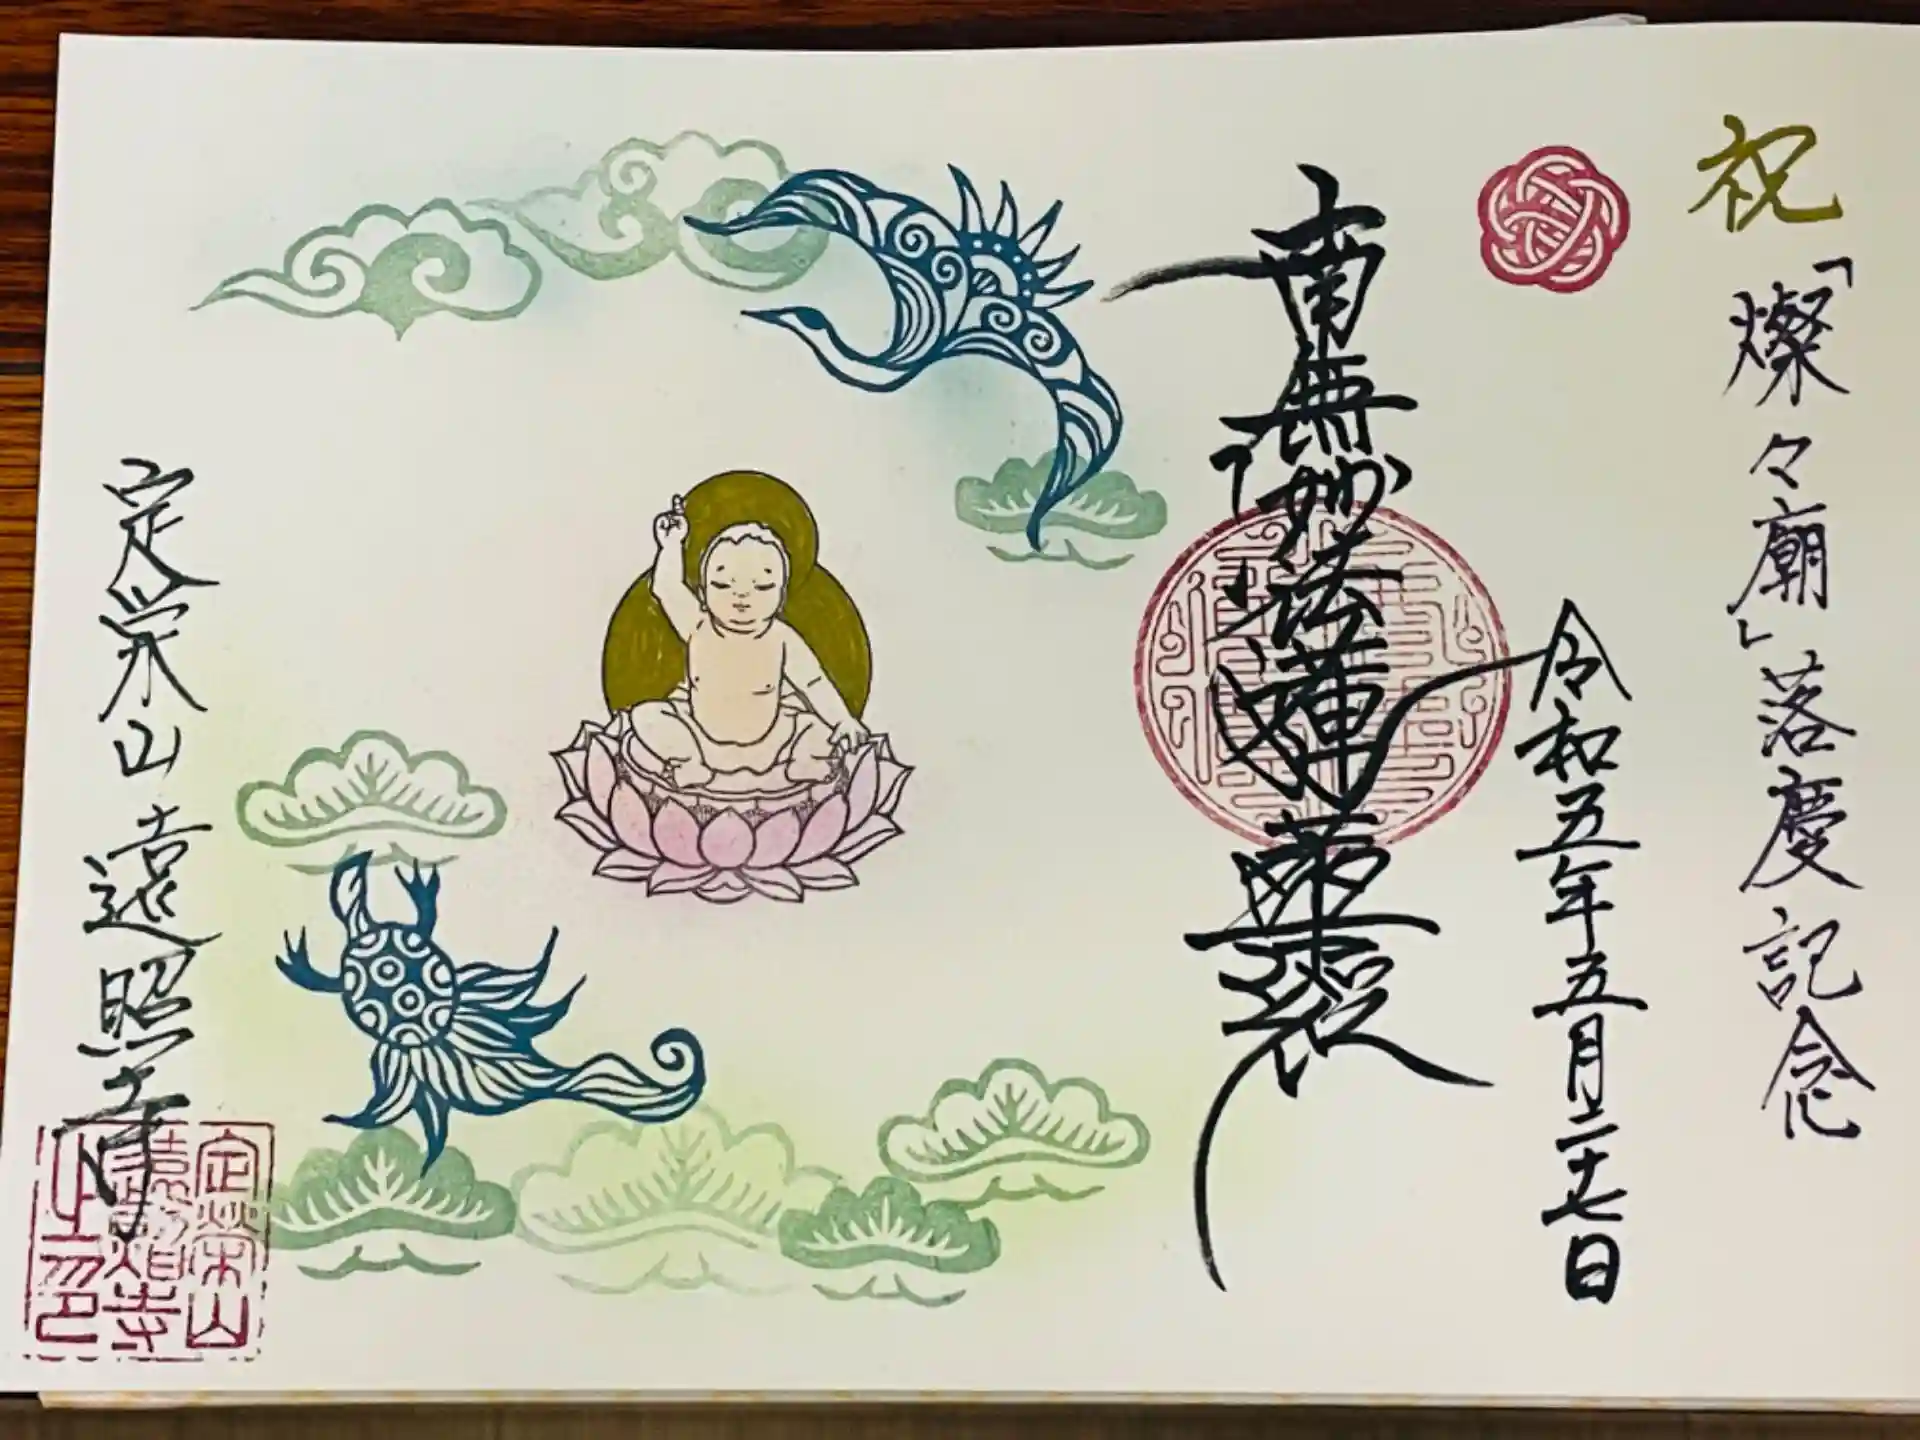 祝
「燦々廟」落慶記念
令和五年五月二十七日
南無妙法蓮華経
定栄山 遠照寺
定栄山
遠照寺
之印